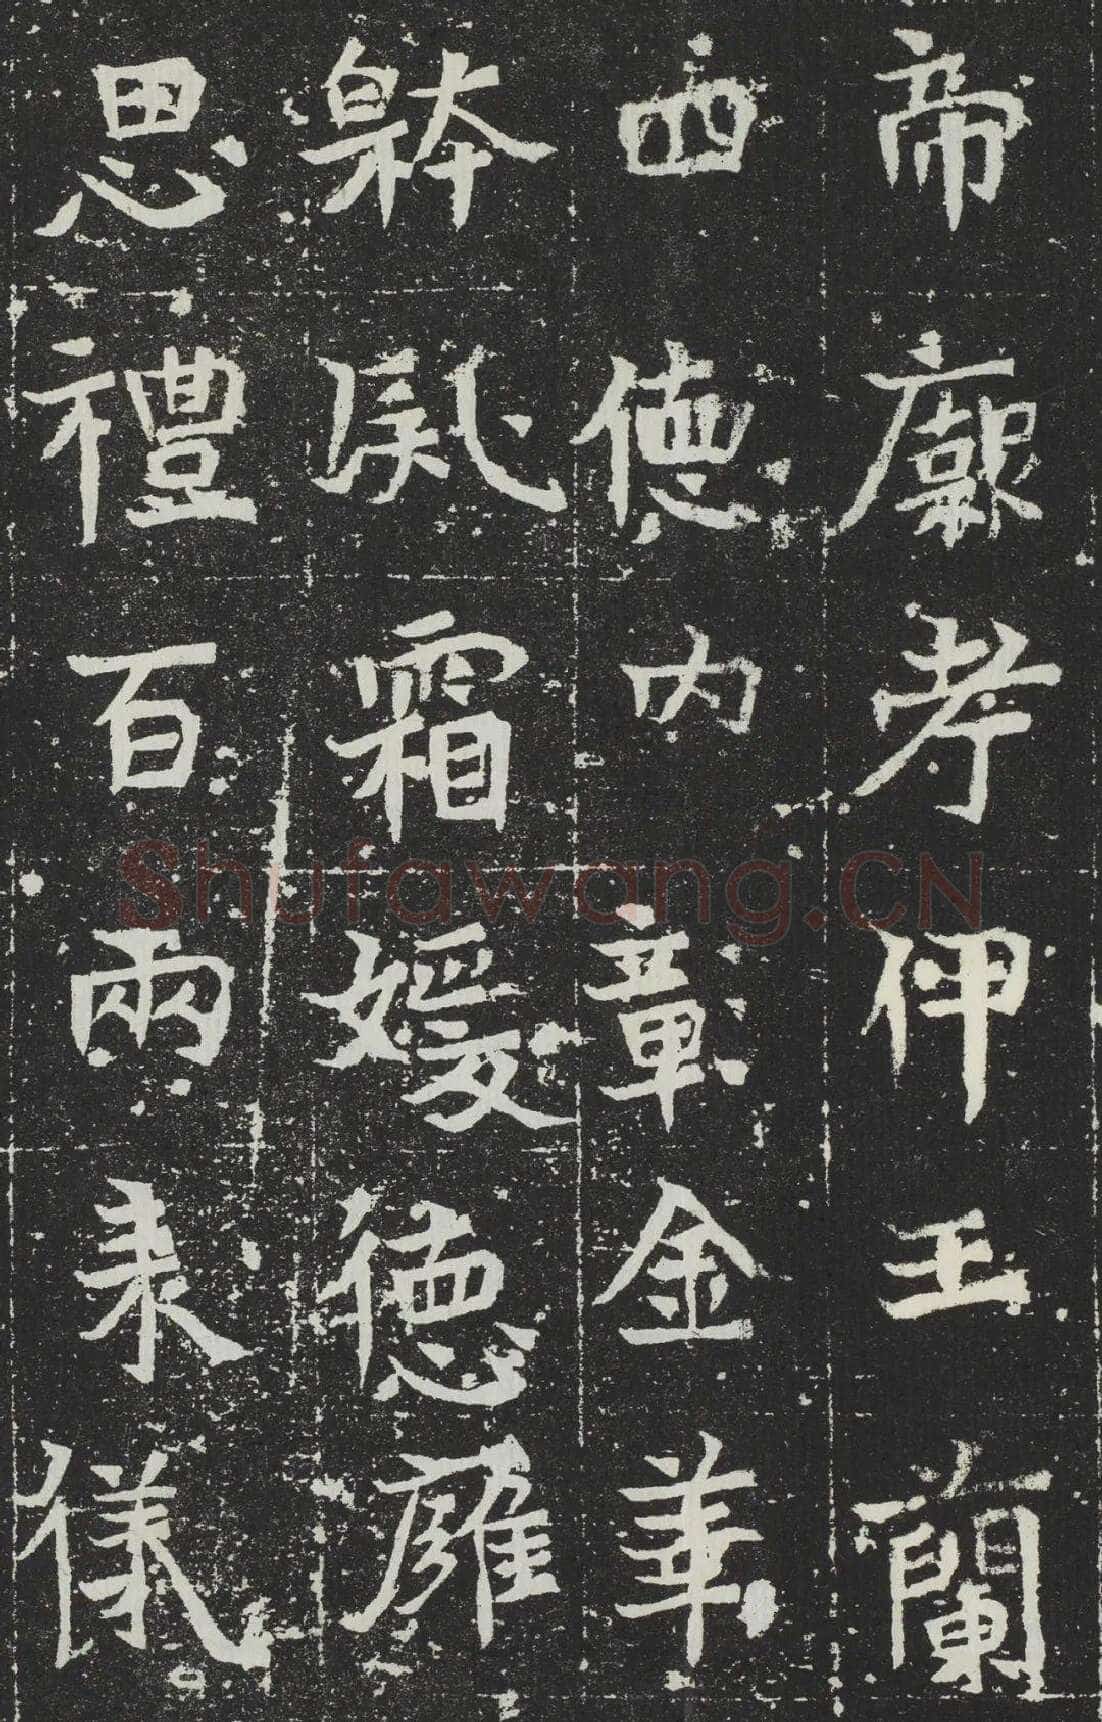 帝廟孝王蘭
四德內章金華
霜媛德雍
思禮百兩来儀
Shufawang.CN